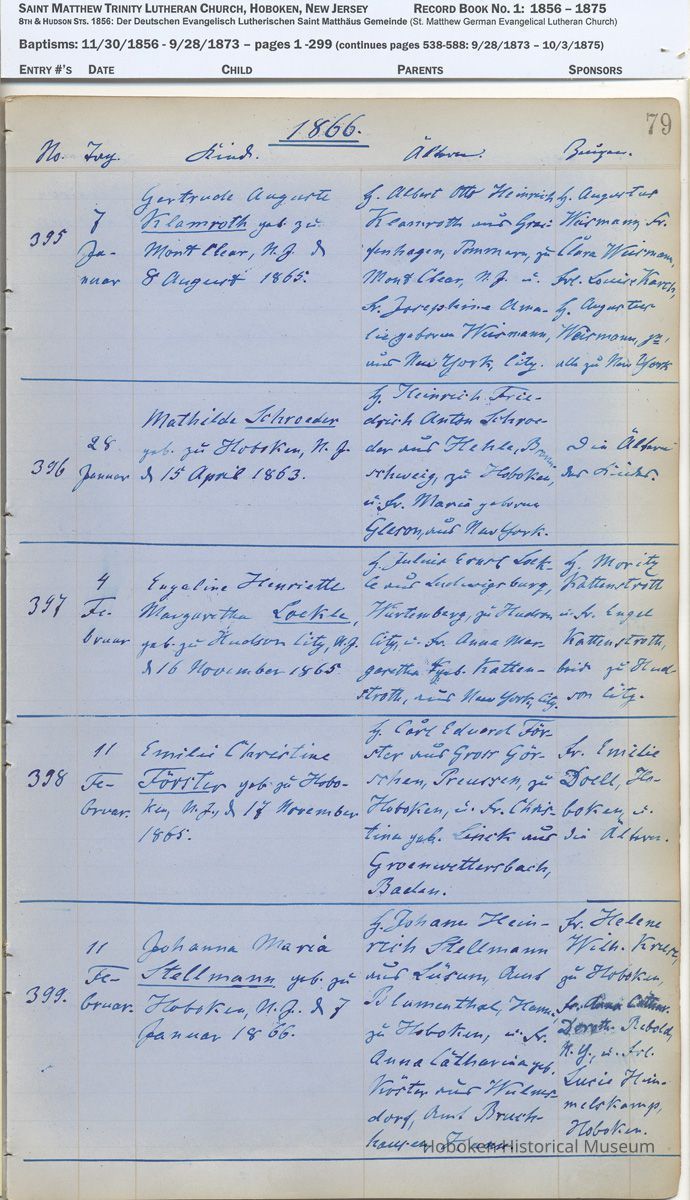 SAINT MATTHEW TRINITY LUTHERAN CHURCH, HOBOKEN, NEW JERSEY RECORD BOOK NO. 1: 1856 – 1875
8TH & HUDSON STS. 1856: Der Deutschen Evangelisch Lutherischen Saint Matthäus Gemeinde (St. Matthew German Evangelical Lutheran Church)
Baptisms: 11/30/1856 - 9/28/1873 – pages 1 -299 (continues pages 538-588: 9/28/1873 – 10/3/1875)
ENTRY #'S DATE CHILD PARENTS SPONSORS
79
1866.
No. Tag. Kind. Ältern. Zeugen.
395
7
Ja-
nuar
Gertrude Auguste
Klamroth geb. zu
Mont Clear, N. J. d
8 August 1865.
H. Albert Otto Heinrich
Klamroth aus Grei-
fenhagen, Pommern, zu
Mont Clear, N. J. u.
Fr. Josephine Ama-
lie geboren Weismann,
aus New York, City.
H. Augustus
Weismann, Fr.
Clara Weismann,
Frl. Louise Karch,
H. Augustus
Weismann, jr.
alle zu New York
396
28
Januar
Mathilde Schroeder
geb. zu Hoboken, N. J.
d 15 April 1863.
H. Heinrich Frie-
drich Anton Schroe-
der aus Hehle, Braun-
schweig, zu Hoboken,
u. Fr. Maria geboren
Gleson, aus New York.
Die Ältern
des Kindes.
397
4
Fe-
bruar
Engeline Henriette
Margaretha Loekle,
geb. zu Hudson City, N.J.
d 16 November 1865
H. Julius Ernst Loek-
le aus Ludwigsburg,
Würtemberg, zu Hudson
City, u. Fr. Anna Mar-
garetha geb. Katten-
stroth, aus New York, City.
H. Moritz
Kattenstroth
u. Fr. Engel
Kattenstroth,
beide zu Hud-
son City.
398
11
Fe-
bruar.
Emilie Christine
Förster geb. zu Hobo-
ken, N. J., d 17 November
1865.
H. Carl Eduard För-
ster aus Gross Gör-
schen, Preussen, zu
Hoboken, u. Fr. Chris-
tina geb. Linck aus
Groenwettersbach,
Baden.
Fr. Emilie
Doell, Ho-
boken, u.
die Ältern.
399.
11
Fe-
bruar.
Johanna Maria
Stellmann geb. zu
Hoboken, N. J. d 7
Januar 1866.
H. Johann Hein-
rich Stellmann
aus Lüsum, Amt
Blumenthal, Hann.
zu Hoboken, u. Fr.
Anna Catharina geb.
Köster aus Wulms-
dorf, Amt Bruch-
hausen,
Fr. Helene
Wilh. Kruse,
zu Hoboken,
Fr. Anna Cathar.
Doroth. Rebold,
N. Y., u. Frl.
Lucie Him-
melskamp,
Hoboken.
Hoboken Historical Museum